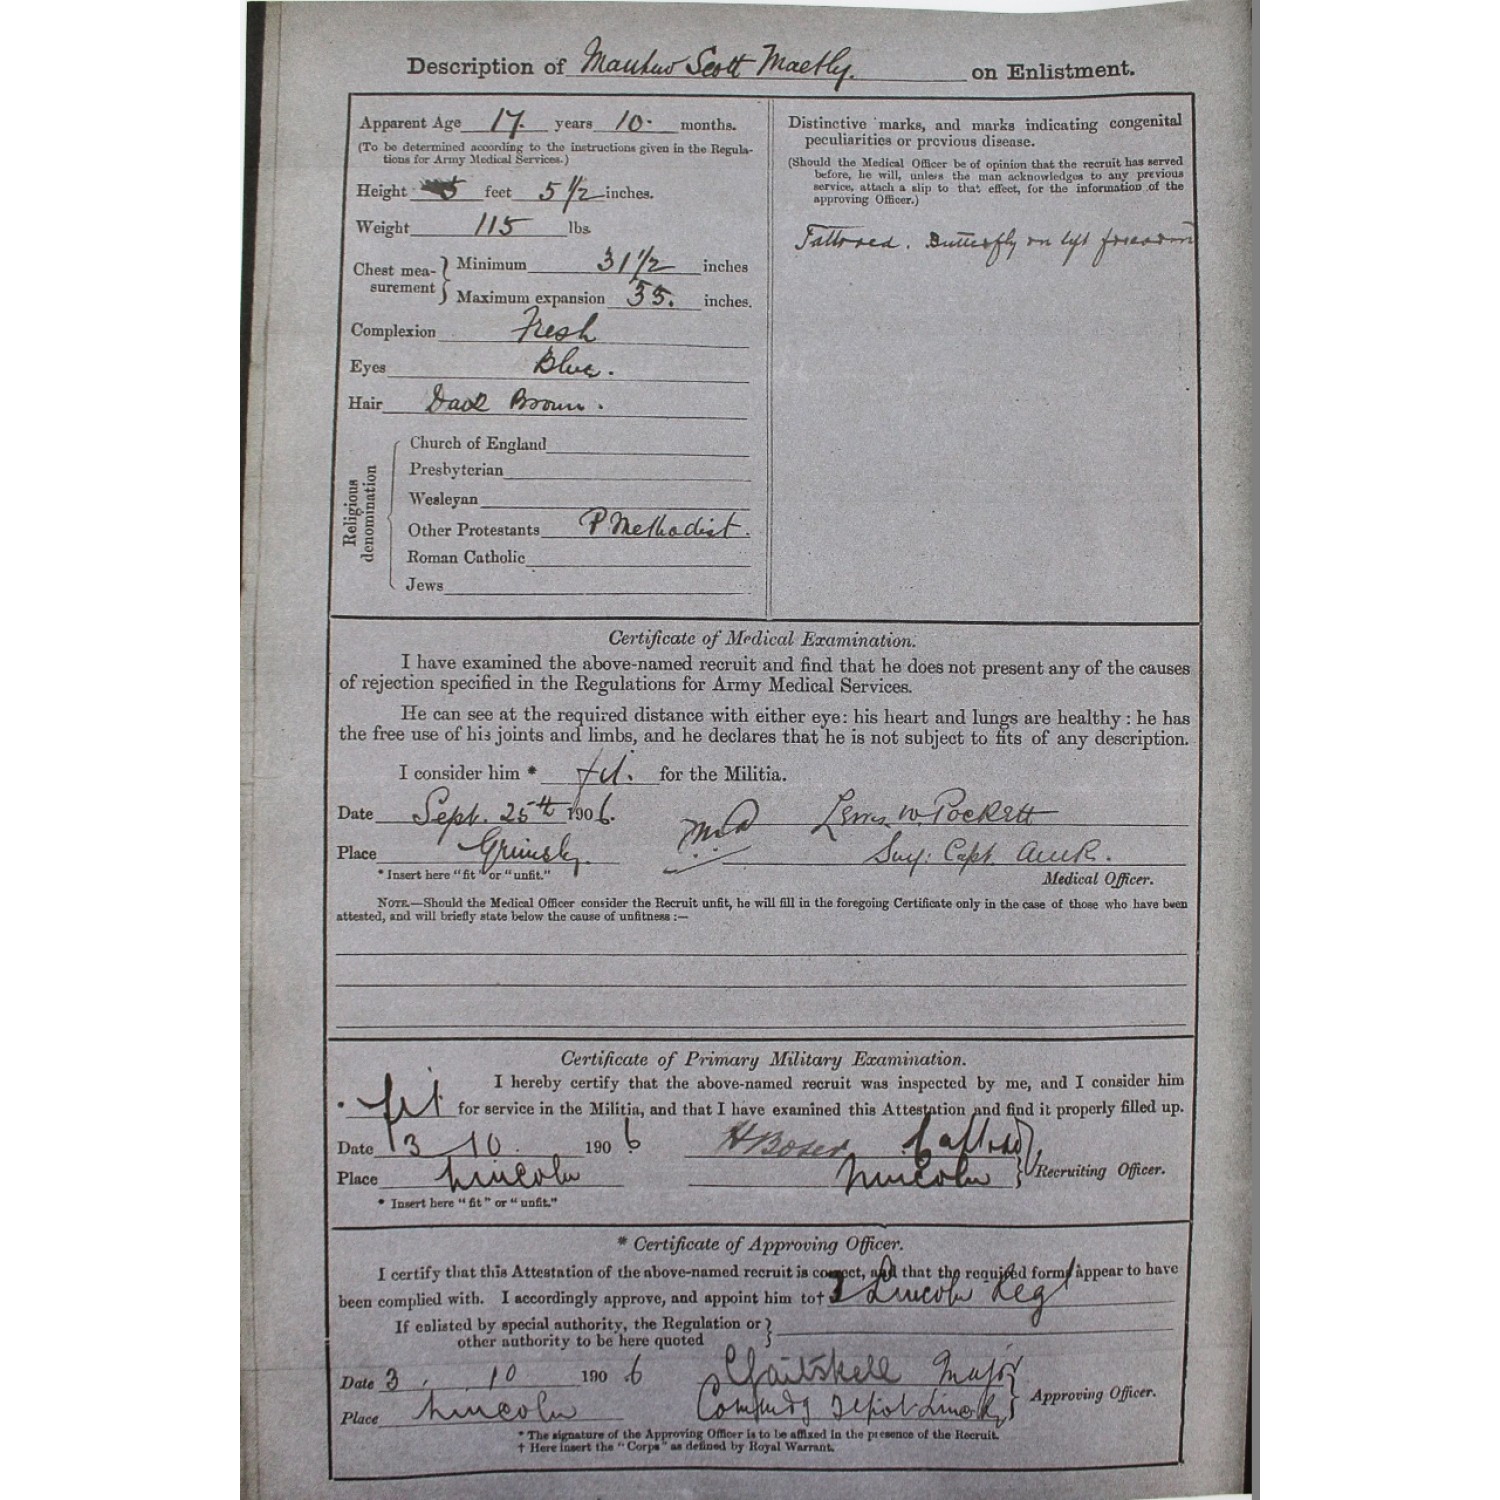 Description of Scott on Enlistment.
Apparent Age 17 years 10 months.
(To be determined according to the instructions given in the Regula-
tions for Army Medical Services.)
Height 5 feet 5 1/2 inches.
Weight 115 lbs.
Chest mea-
surement
Minimum 31 1/2 inches
Maximum expansion 35. inches.
Complexion Fresh
Eyes Blue.
Hair Dark Brown.
Religious
denomination
Church of England
Presbyterian
Wesleyan
Other Protestants P Methodist.
Roman Catholic
Jews
Distinctive marks, and marks indicating congenital
peculiarities or previous disease.
(Should the Medical Officer be of opinion that the recruit has served
before, he will, unless the man acknowledges to any previous
service, attach a slip to that effect, for the information of the
approving Officer.)
Tattooed. Butterfly on left forearm
Certificate of Medical Examination.
I have examined the above-named recruit and find that he does not present any of the causes
of rejection specified in the Regulations for Army Medical Services.
He can see at the required distance with either eye: his heart and lungs are healthy: he has
the free use of his joints and limbs, and he declares that he is not subject to fits of any description.
I consider him * fit. for the Militia.
Date Sept. 25th 1906.
Place Grimsby.
* Insert here "fit" or "unfit."
Lewis W. Pockett
Capt.
Medical Officer.
NOTE.—Should the Medical Officer consider the Recruit unfit, he will fill in the foregoing Certificate only in the case of those who have been
attested, and will briefly state below the cause of unfitness:—
Certificate of Primary Military Examination.
I hereby certify that the above-named recruit was inspected by me, and I consider him
* fit for service in the Militia, and that I have examined this Attestation and find it properly filled up.
Date 3 10. 1906
Place Lincoln
Lincoln Recruiting Officer.
* Insert here "fit" or "unfit."
* Certificate of Approving Officer.
I certify that this Attestation of the above-named recruit is correct, and that the required forms appear to have
been complied with. I accordingly approve, and appoint him to† 3 Lincoln Regt
If enlisted by special authority, the Regulation or
other authority to be here quoted
Date 3. 10 1906
Place Lincoln
Gaitskell Major
Commdg Depot Lincoln
Approving Officer.
* The signature of the Approving Officer is to be affixed in the presence of the Recruit.
† Here insert the "Corps" as defined by Royal Warrant.